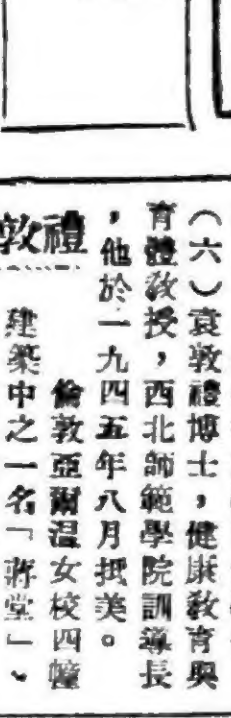 （六）袁敦禮博士，健康敎育與
育體敎授，西北師範學院訓導長
，他於一九四五年八月抵美。
禮
敦
倫敦亞爾温女校四幢
建築中之一名「蔣堂」、